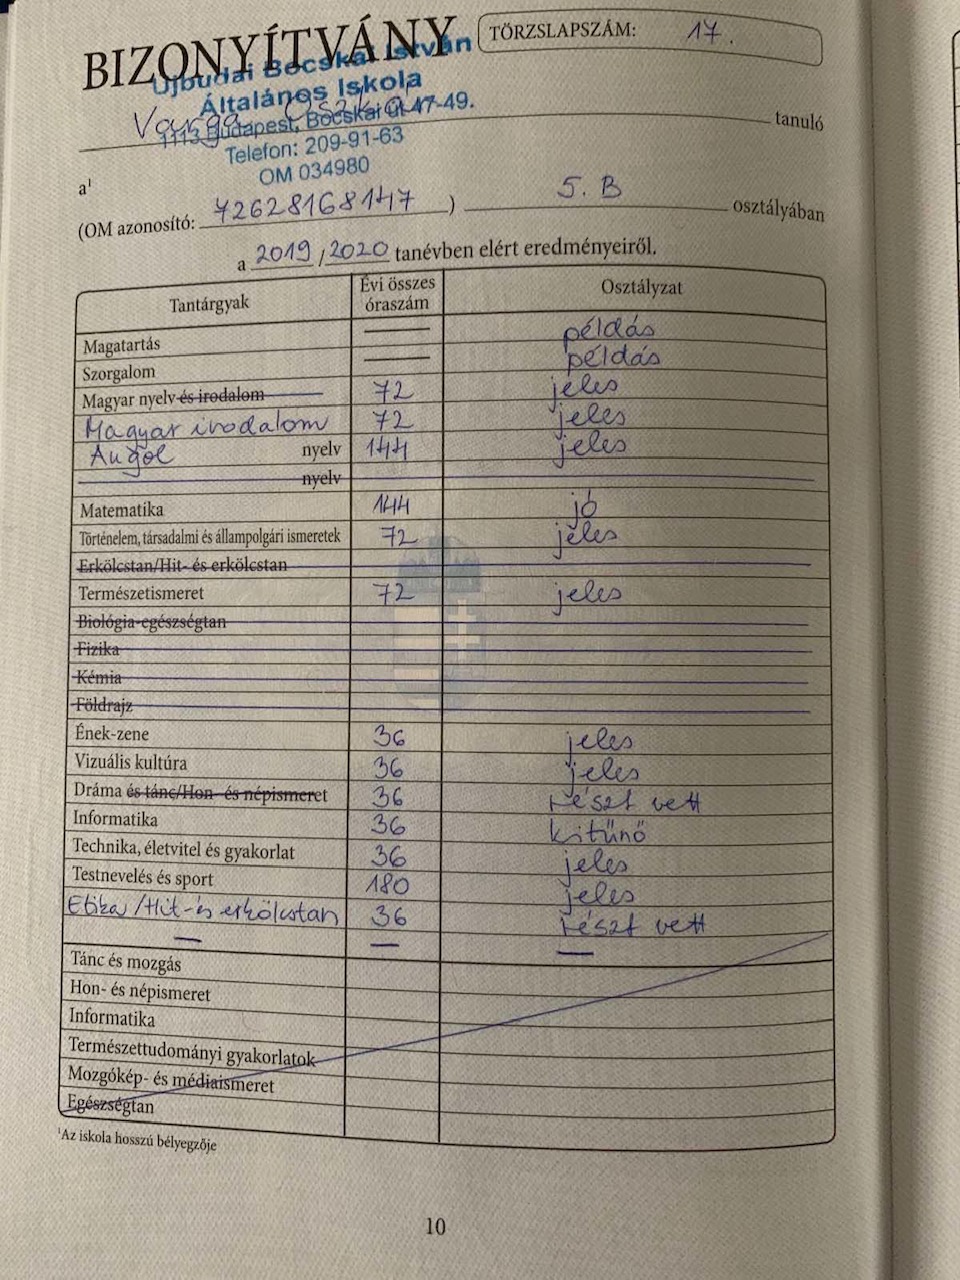 BIZONYÍTVÁNY
TÖRZSLAPSZÁM: 17.
Újbudai Bocskai István
Általános Iskola
1113 Budapest, Bocskai út 47-49.
Telefon: 209-91-63
OM 034980
Varga Oszkár tanuló
a¹
(OM azonosító: 72628168147) 5. B osztályában
a 2019/2020 tanévben elért eredményeiről.
Tantárgyak Évi összes óraszám Osztályzat
Magatartás — példás
Szorgalom — példás
Magyar nyelv és irodalom 72 jeles
Magyar irodalom 72 jeles
Angol nyelv 144 jeles
nyelv
Matematika 144 jó
Történelem, társadalmi és állampolgári ismeretek 72 jeles
Erkölcstan/Hit- és erkölcstan
Természetismeret 72 jeles
Biológia-egészségtan
Fizika
Kémia
Földrajz
Ének-zene 36 jeles
Vizuális kultúra 36 jeles
Dráma és tánc/Hon- és népismeret 36 részt vett
Informatika 36 kitűnő
Technika, életvitel és gyakorlat 36 jeles
Testnevelés és sport 180 jeles
Etika/Hit-és erkölcstan 36 részt vett
— — —
Tánc és mozgás
Hon- és népismeret
Informatika
Természettudományi gyakorlatok
Mozgókép- és médiaismeret
Egészségtan
¹Az iskola hosszú bélyegzője
10